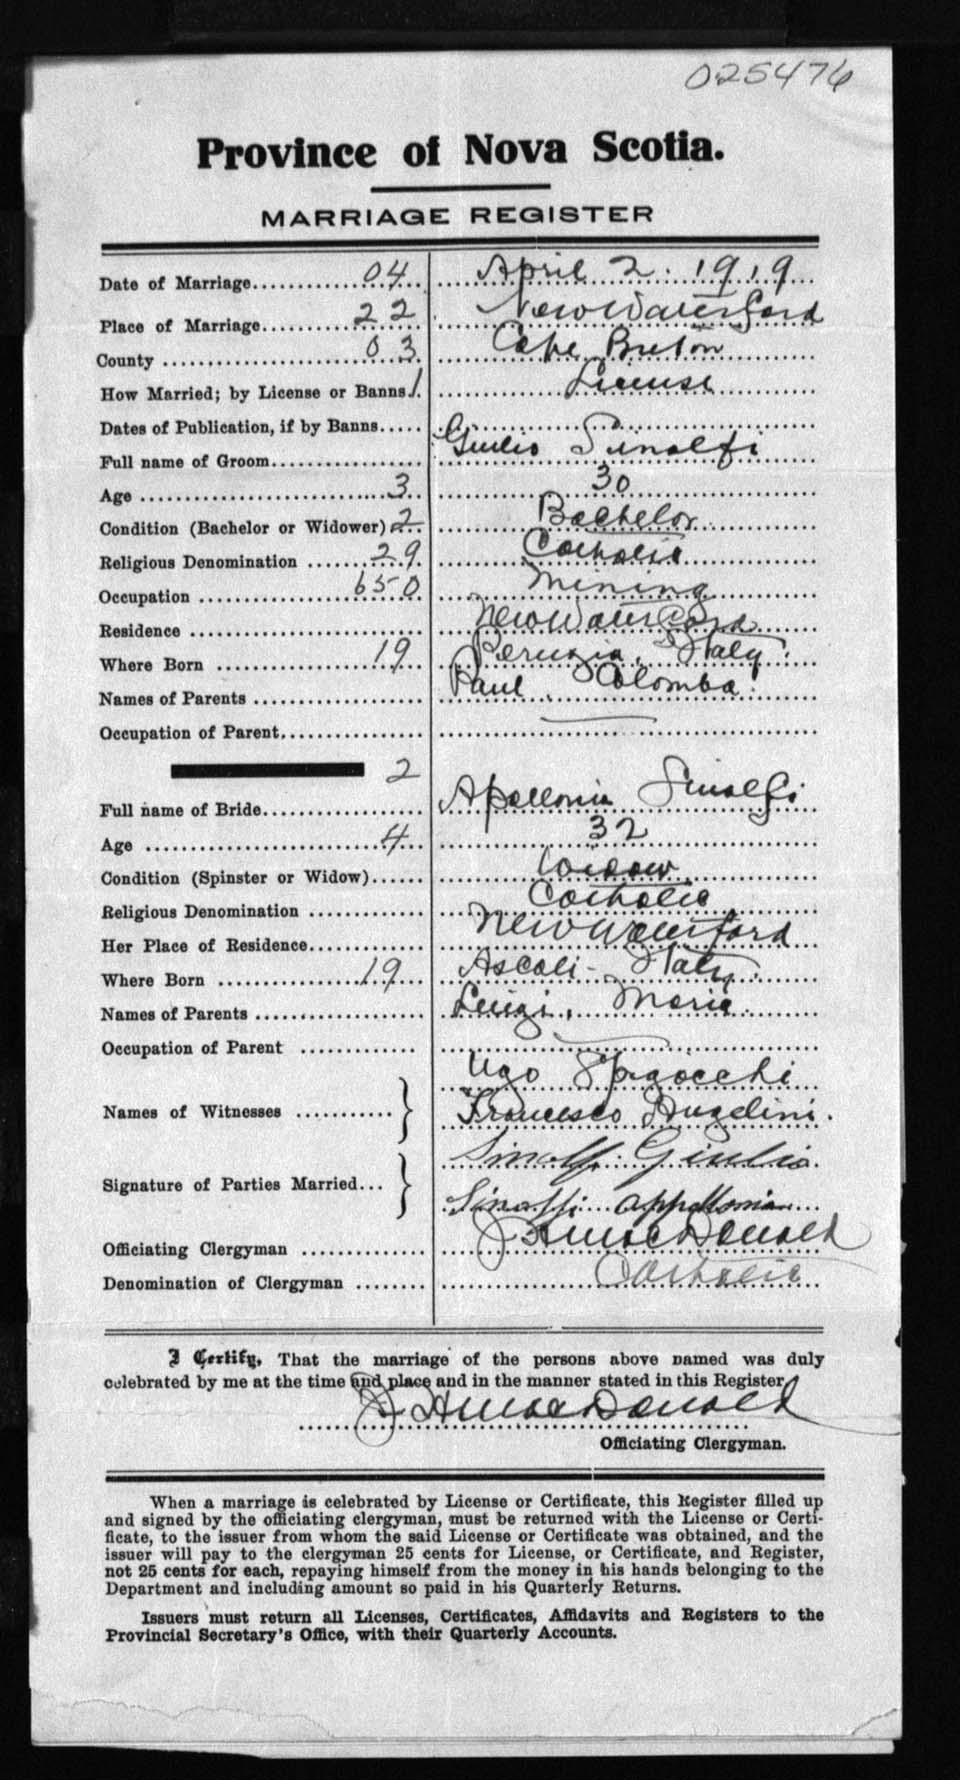 025476
Province of Nova Scotia.
MARRIAGE REGISTER
Date of Marriage 04 April 2. 1919
Place of Marriage 22 New Waterford
County 03 Cape Breton
How Married; by License or Banns 1 License
Dates of Publication, if by Banns
Full name of Groom Giulio Sinolfi
Age 3 30
Condition (Bachelor or Widower) 2 Bachelor
Religious Denomination 29 Catholic
Occupation 650 Mining
Residence New Waterford
Where Born 19 Perugia, Italy.
Names of Parents Paul, Colomba.
Occupation of Parent
2
Full name of Bride Apollonia Sinolfi
Age 4 32
Condition (Spinster or Widow) Widow
Religious Denomination Catholic
Her Place of Residence New Waterford
Where Born 19 Ascoli - Italy.
Names of Parents Luigi, Maria
Occupation of Parent
Ugo
Names of Witnesses Francesco Angelini.
Sinolfi Giulio
Signature of Parties Married Sinolfi Appollonia
Officiating Clergyman J H MacDonald
Denomination of Clergyman Catholic
I Certify, That the marriage of the persons above named was duly
celebrated by me at the time and place and in the manner stated in this Register
J H MacDonald
Officiating Clergyman.
When a marriage is celebrated by License or Certificate, this Register filled up
and signed by the officiating clergyman, must be returned with the License or Certi-
ficate, to the issuer from whom the said License or Certificate was obtained, and the
issuer will pay to the clergyman 25 cents for License, or Certificate, and Register,
not 25 cents for each, repaying himself from the money in his hands belonging to the
Department and including amount so paid in his Quarterly Returns.
Issuers must return all Licenses, Certificates, Affidavits and Registers to the
Provincial Secretary's Office, with their Quarterly Accounts.